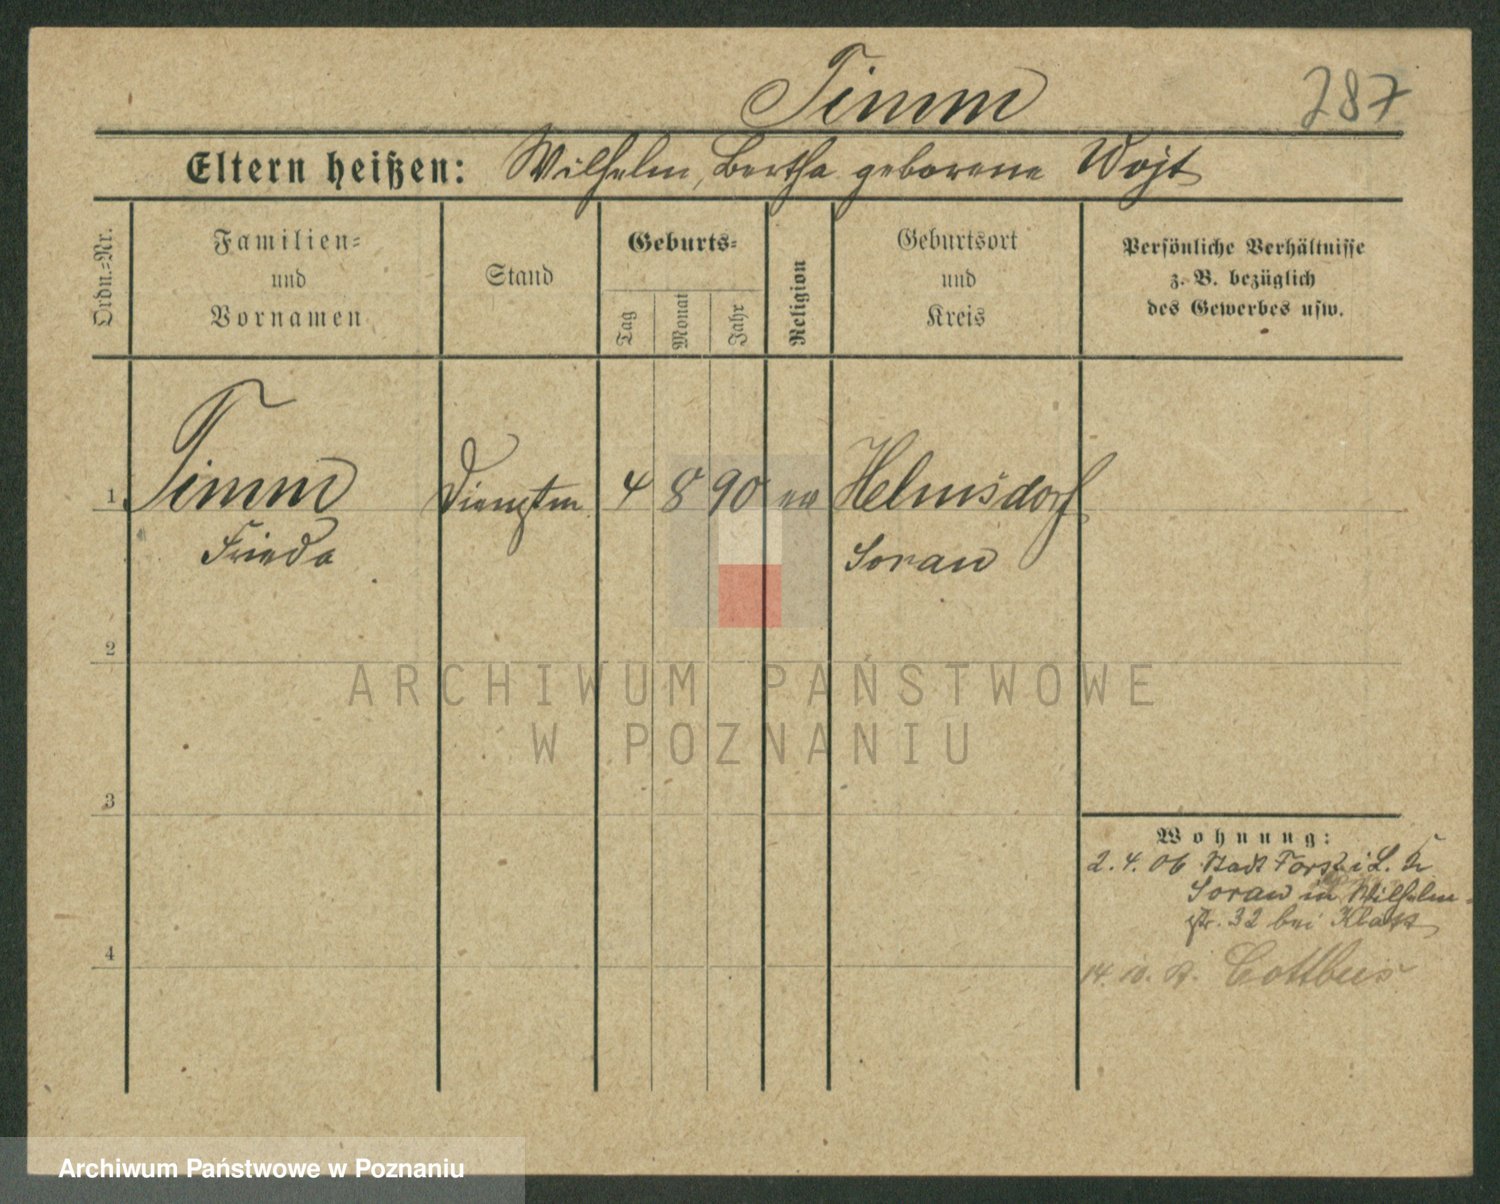 Timm
287
Eltern heißen: Wilhelm, Bertha geborene Wojt
Ordn.=Nr.
Familien=
und
Vornamen
Stand
Geburts=
Tag
Monat
Jahr
Religion
Geburtsort
und
Kreis
Persönliche Verhältnisse
z. B. bezüglich
des Gewerbes usw.
1 Timm Dienstm 4 8 90 ev Helmsdorf
Frieda Sorau
2
3
4
ARCHIWUM PAŃSTWOWE
W POZNANIU
Wohnung:
2. 4. 06 Stadt Forst i L. Kr
Sorau in Wilhelm-
str. 32 bei
14. Cottbus
Archiwum Państwowe w Poznaniu